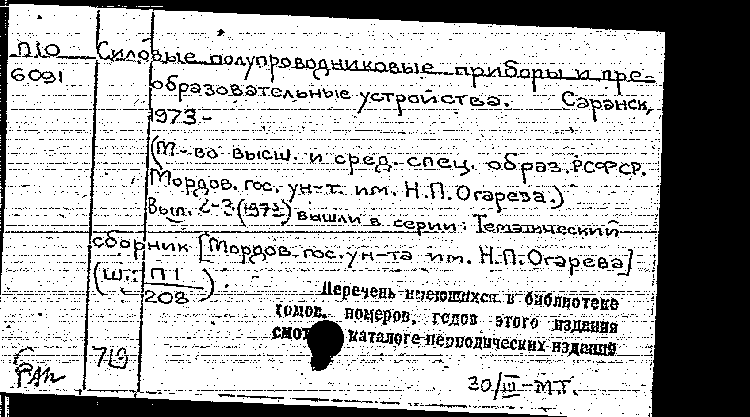 П10 Силовые полупроводниковые приборы и пре-
6091 образовательные устройства. Саранск,
1973-
(М-во высш. и сред. спец. образ. РСФСР.
Мордов. гос. ун-т. им. Н.П. Огарева.)
Вып. 2-3 (1973) вышли в серии: Тематический
сборник [Мордов. гос. ун-та им. Н.П. Огарева]
(Ш.: П1
208 ).
Перечень имеющихся в библиотеке
томов, номеров, годов этого издания
каталоге периодических изданий
719
30/III-М.Г.